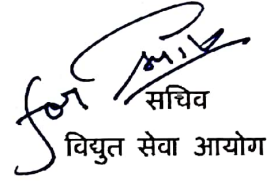 for
सचिव
विद्युत सेवा आयोग